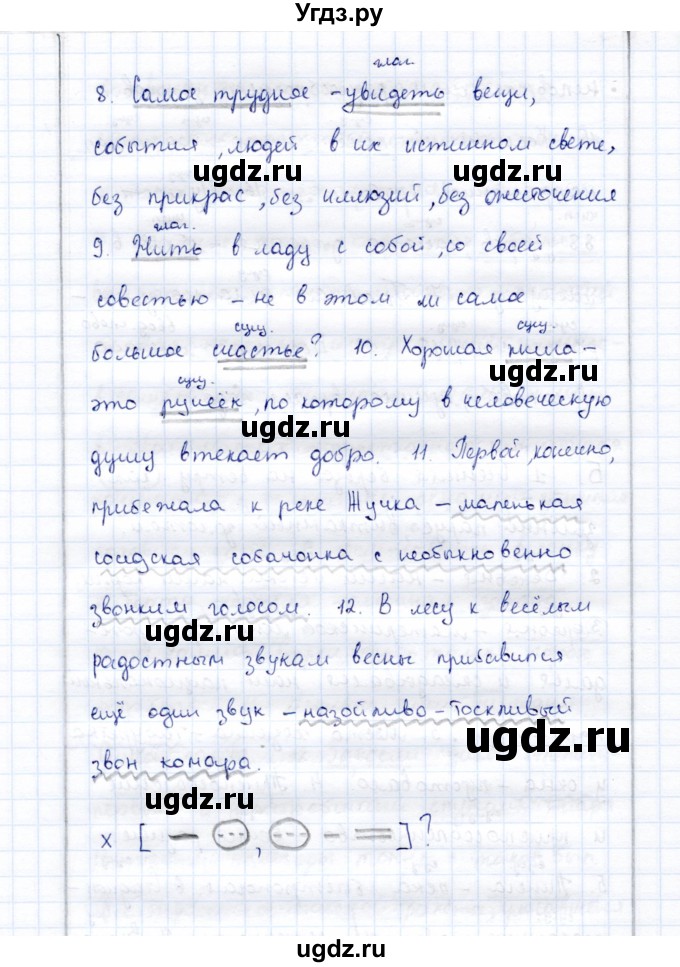 Угдз.ру
глаг.
8. Самое трудное – увидеть вещи,
события, людей в их истинном свете,
ugdz.ru ugdz.ru
без прикрас, без иллюзий, без ожесточения
глаг.
9. Жить в ладу с собой, со своей
совестью – не в этом ли самое
сущ. сущ.
большое счастье? 10. Хорошая книга –
сущ.
это ручеёк, по которому в человеческую
ugdz.ru ugdz.ru
душу втекает добро. 11. Первой, конечно,
прибежала к реке Жучка – маленькая
соидская собачонка с необыкновенно
звонким голосом. 12. В лесу к весёлым
ugdz.ru
радостным звукам весны прибавился
ещё один звук – назойливо-тоскливый
ugdz.ru
звон комара.
ugdz.ru
х [ – , – = ] ?
ugdz.ru